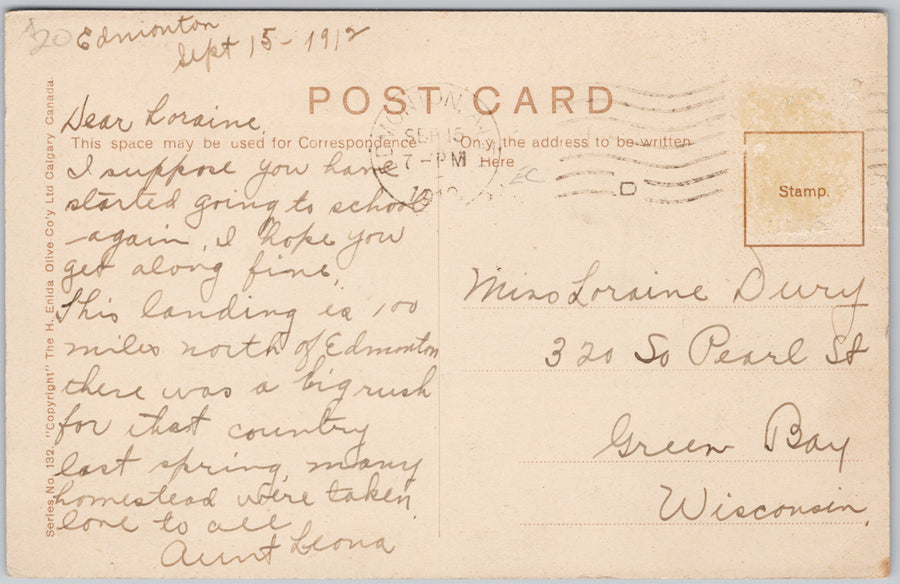 $20
Edmonton
Sept 15 - 1912
POST CARD
Dear Loraine,
This space may be used for Correspondence
Only the address to be written
Here
EDMONTON
SEP 15
7 - PM
EC
Stamp.
I suppose you have
started going to school
again, I hope you
get along fine,
This landing is 100
miles north of Edmonton
there was a big rush
for that country
last spring, many
homestead were taken,
love to all
Aunt Leona
Miss Loraine Dury
320 So Pearl St
Green Bay
Wisconsin,
Series No. 132, "Copyright" The H. Enida Olive Co'y Ltd Calgary Canada.